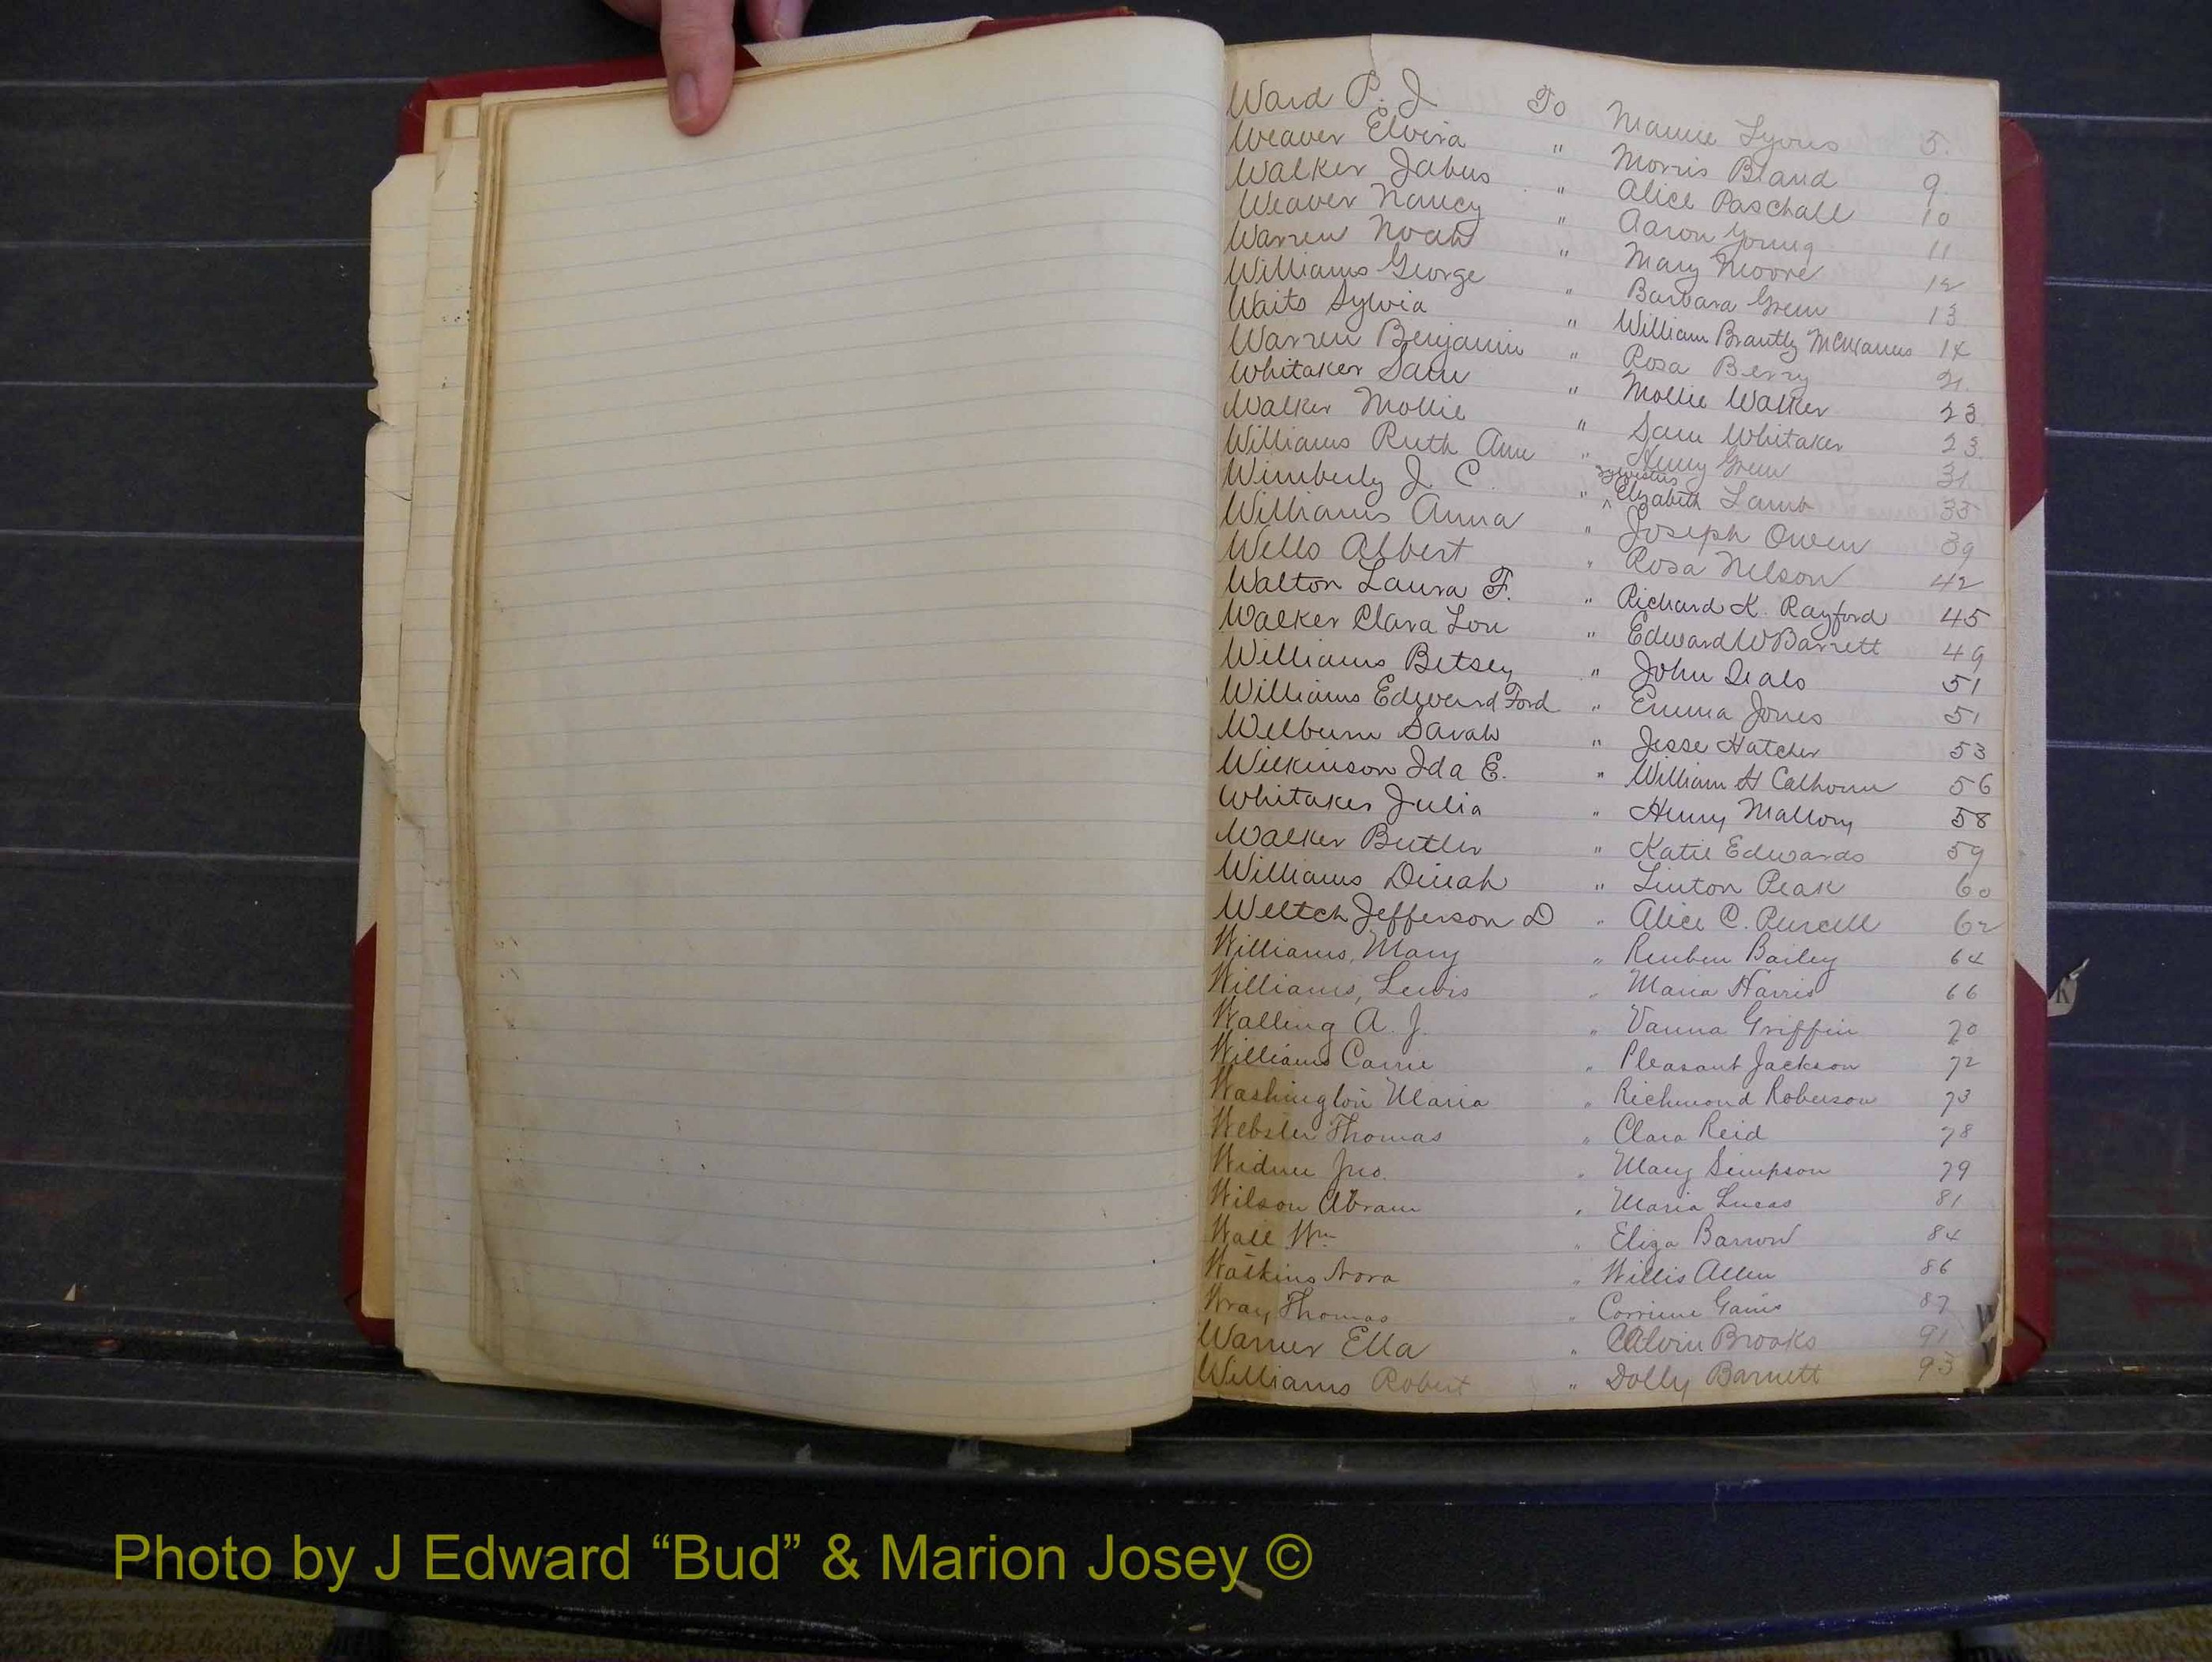 Ward P. J To Mamie Lyons 5.
Weaver Elvira " Morris Bland 9
Walker Jabus " Alice Paschall 10
Weaver Nancy " Aaron Young 11
Warren Noah " Mary Moore 12
Williams George " Barbara Green 13
Waits Sylvia " William Brantly McManus 14
Warren Benjamin " Rosa Berry 21.
Whitaker Sam " Mollie Walker 23
Walker Mollie " Sam Whitaker 23
Williams Ruth Ann " Henry Green 31
Sylvestus
Wimberly J. C. " ^ Elizabeth Lamb 35
Williams Anna " Joseph Owen 39
Wells Albert " Rosa Nelson 42
Walton Laura F. " Richard K. Rayford 45
Walker Clara Lou " Edward W Barrett 49
Williams Betsey " John Deals 51
Williams Edward Ford " Emma Jones 51
Welburn Sarah " Jesse Hatcher 53
Wilkinson Ida E. " William H Calhoun 56
Whitaker Julia " Henry Mallory 58
Walker Butler " Katie Edwards 59
Williams Dinah " Linton Peak 60
Weltch Jefferson D " Alice C. Purcell 62
Williams, Mary " Reuben Bailey 64
Williams, Lewis " Maria Harris 66
Walling A. J. " Vanna Griffin 70
Williams Carrie " Pleasant Jackson 72
Washington Maria " Richmond Roberson 73
Webster Thomas " Clara Reid 78
Widner Jno. " Mary Simpson 79
Wilson Abram " Maria Lucas 81
Wall Wm " Eliza Barron 84
Watkins Nora " Willis Allen 86
Wray Thomas " Corrine Gains 87
Warner Ella " Calvin Brooks 91
Williams Robert " Dolly Barnett 93
K
W
Photo by J Edward “Bud” & Marion Josey ©